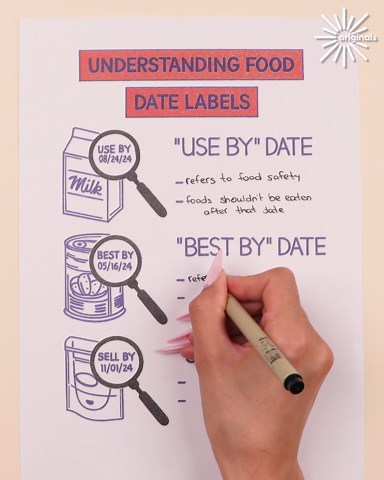 originals
UNDERSTANDING FOOD
DATE LABELS
USE BY
08/24/24
Milk
"USE BY" DATE
- refers to food safety
- foods shouldn't be eaten
after that date
BEST BY
05/16/24
"BEST BY" DATE
-
SELL BY
11/01/24
-
-